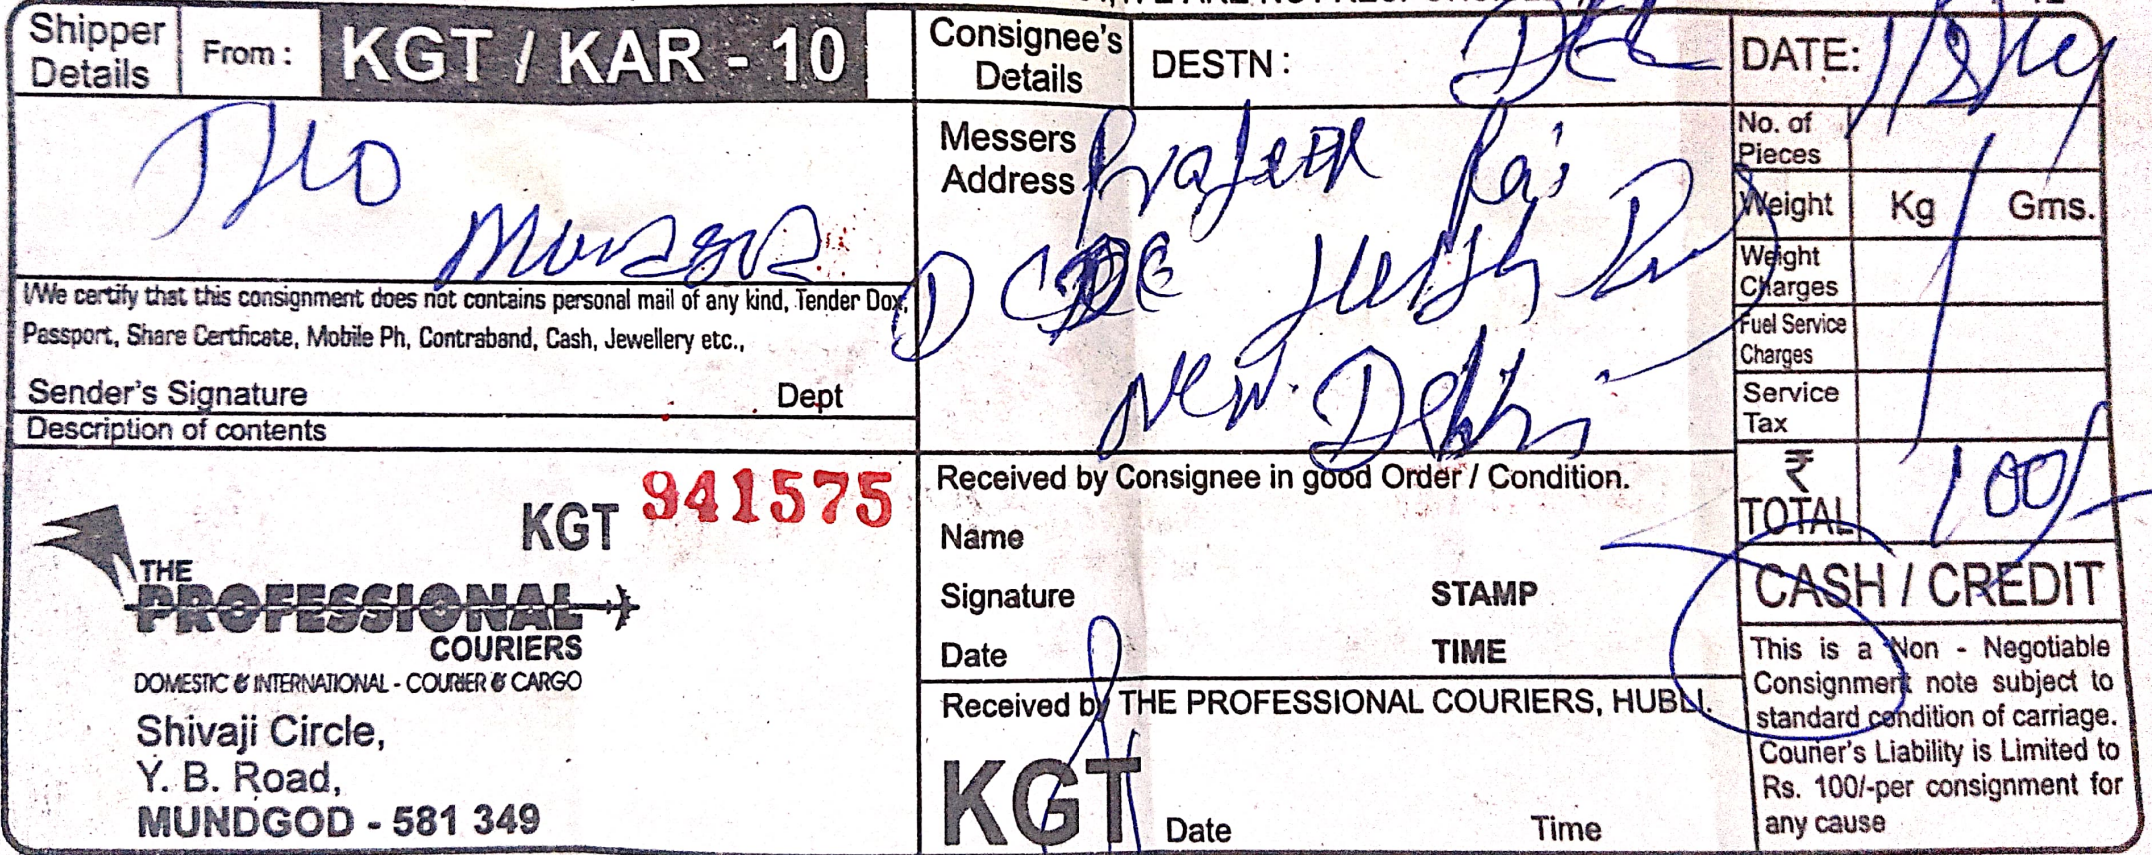 Shipper Details From : KGT / KAR - 10
THO
I/We certify that this consignment does not contains personal mail of any kind, Tender Dox,
Passport, Share Certficate, Mobile Ph, Contraband, Cash, Jewellery etc.,
Sender's Signature Dept
Description of contents
KGT 941575
THE
PROFESSIONAL
COURIERS
DOMESTIC & INTERNATIONAL - COURIER & CARGO
Shivaji Circle,
Y. B. Road,
MUNDGOD - 581 349
Consignee's Details DESTN : Del
Messers
Address
New Delhi
Received by Consignee in good Order / Condition.
Name
Signature STAMP
Date TIME
Received by THE PROFESSIONAL COURIERS, HUBLI.
KGT Date Time
DATE:
No. of
Pieces
Weight Kg Gms.
Weight
Charges
Fuel Service
Charges
Service
Tax
₹
TOTAL 100/-
CASH / CREDIT
This is a Non - Negotiable
Consignment note subject to
standard condition of carriage.
Courier's Liability is Limited to
Rs. 100/-per consignment for
any cause